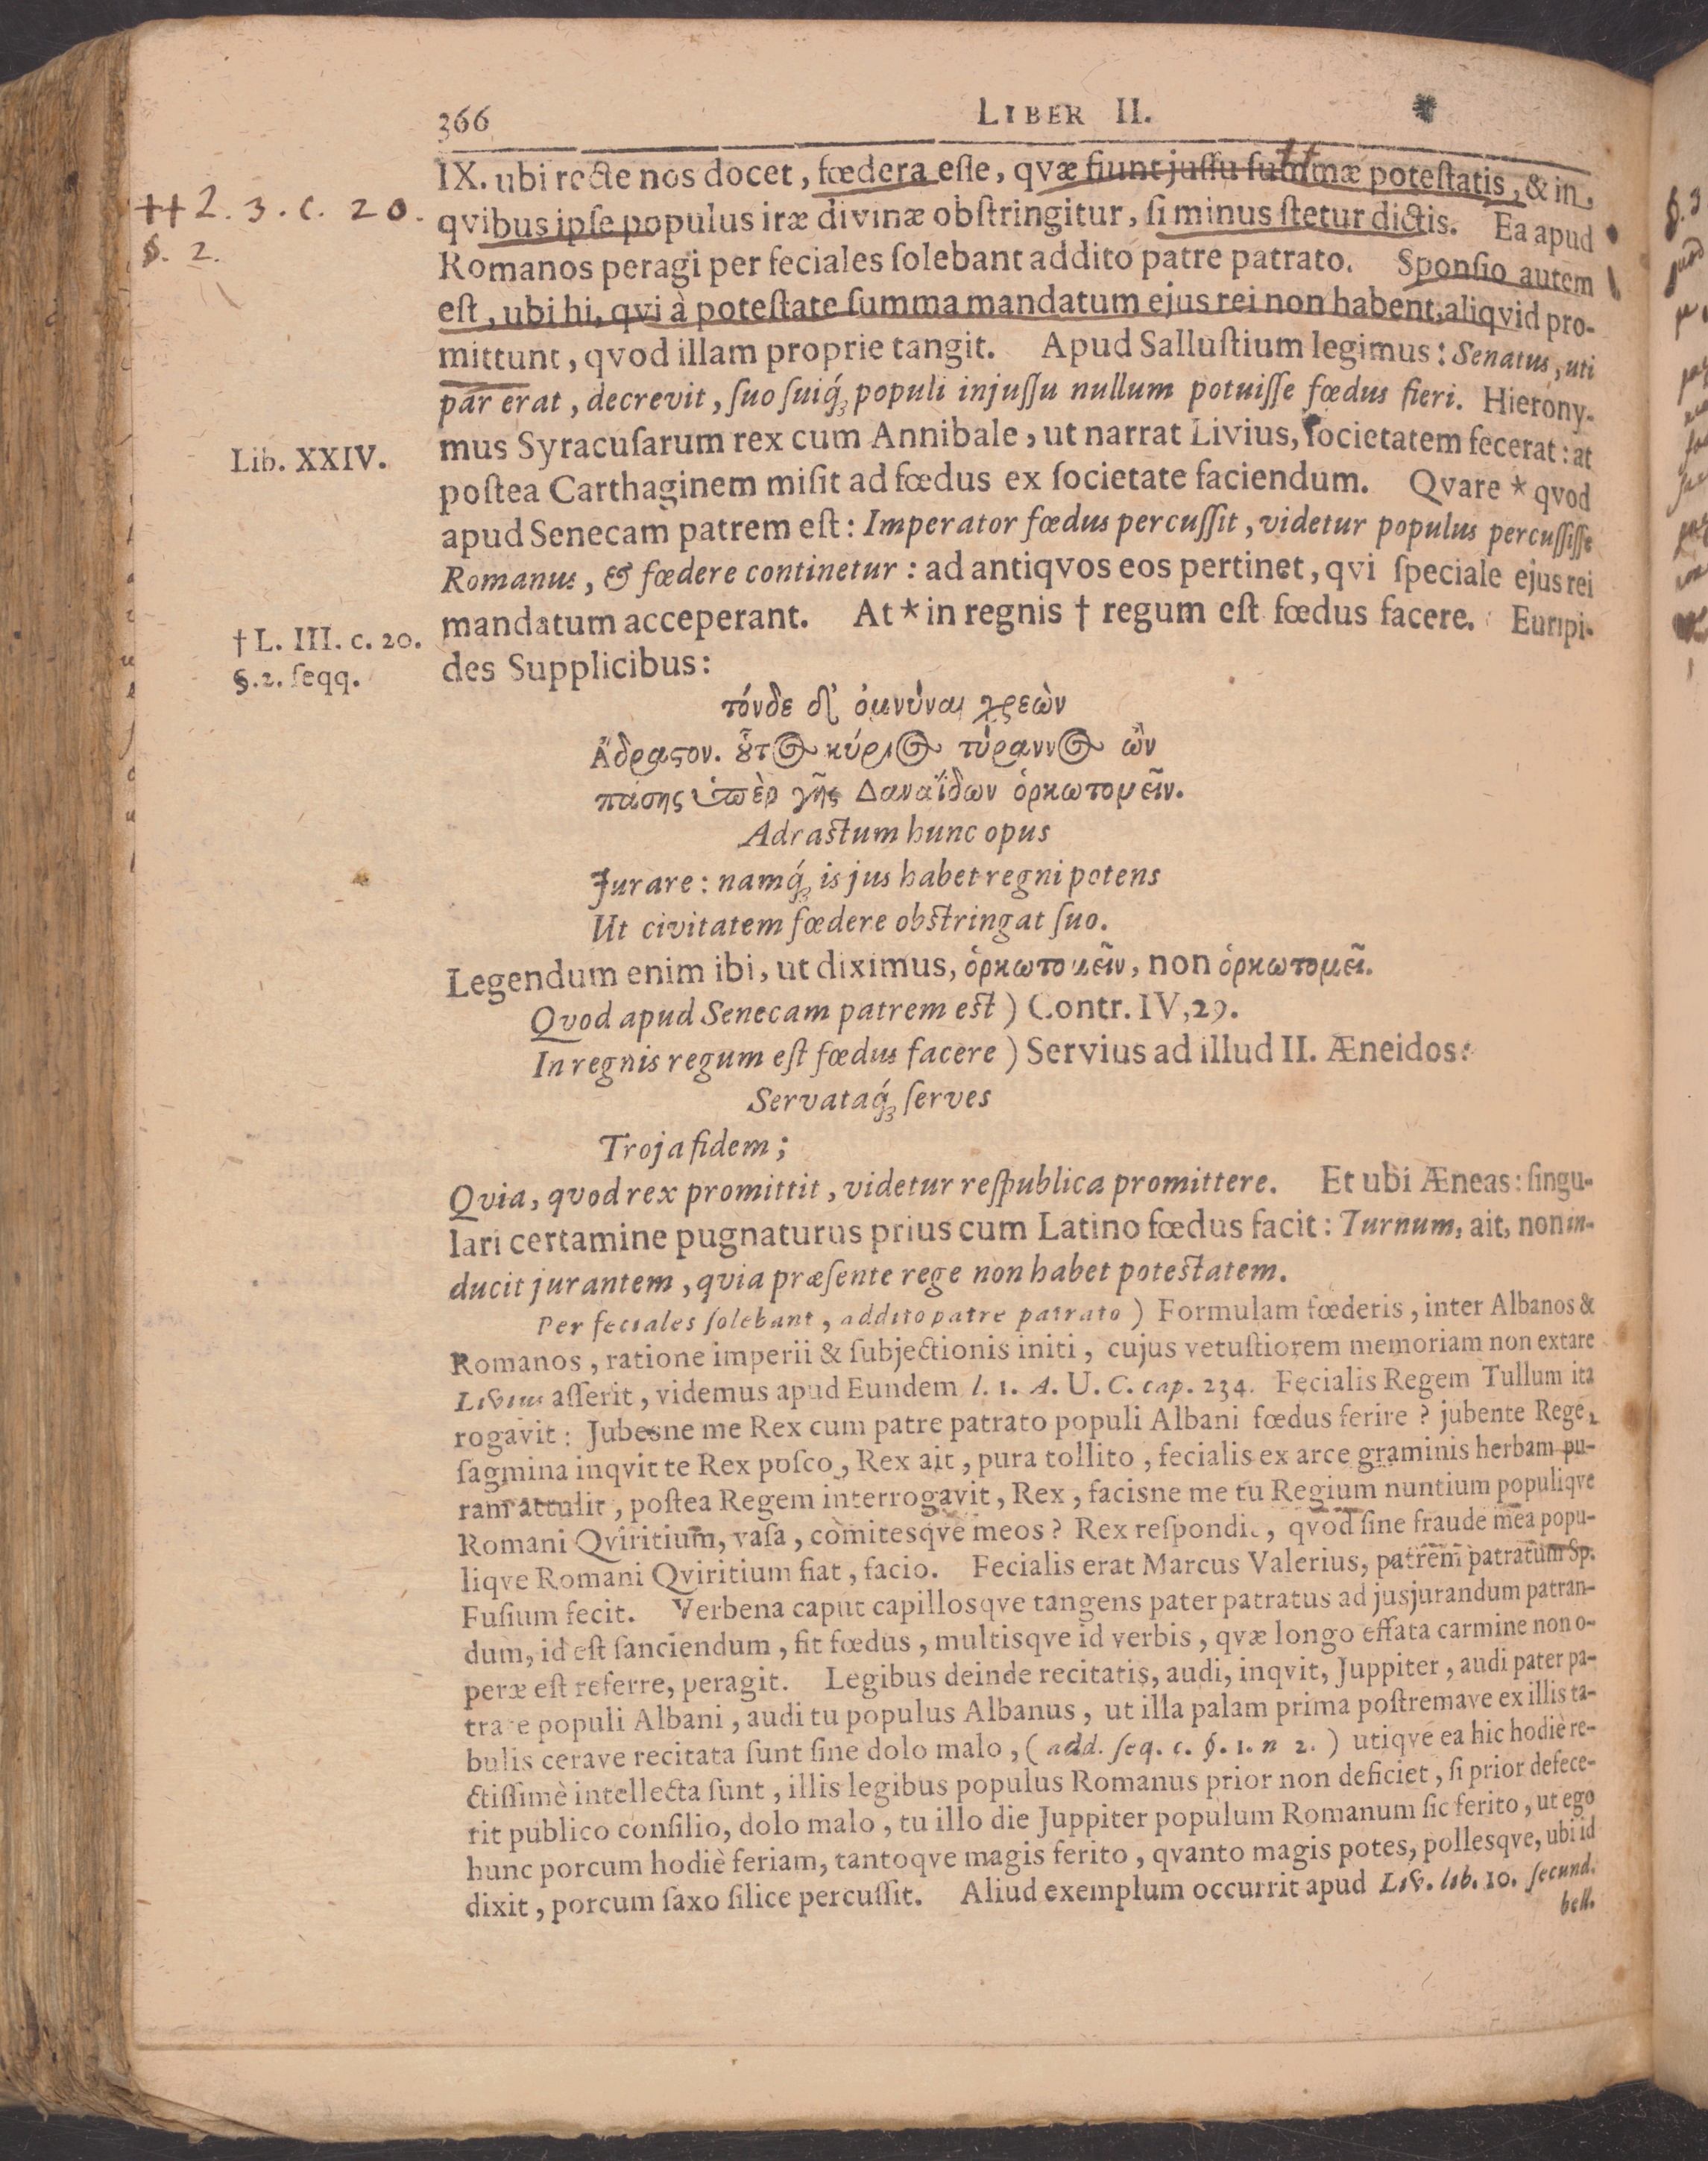 366 LIBER II.
IX. ubi recte nos docet, fœdera eſſe, qvæ fiunt juſſu ſummæ poteſtatis, & in
qvibus ipſe populus iræ divinæ obſtringitur, ſi minus ſtetur dictis. Ea apud
Romanos peragi per feciales ſolebant addito patre patrato. Sponſio autem
eſt, ubi hi, qvi à poteſtate ſumma mandatum ejus rei non habent, aliqvid pro-
mittunt, qvod illam proprie tangit. Apud Salluſtium legimus: Senatus, uti
par erat, decrevit, ſuo ſuiq́; populi injuſſu nullum potuiſſe fœdus fieri. Hierony-
mus Syracuſarum rex cum Annibale, ut narrat Livius, ſocietatem fecerat: at
poſtea Carthaginem miſit ad fœdus ex ſocietate faciendum. Qvare * qvod
apud Senecam patrem eſt: Imperator fœdus percuſſit, videtur populus percuſſiſſe
Romanus, & fœdere continetur: ad antiqvos eos pertinet, qvi ſpeciale ejus rei
mandatum acceperant. At * in regnis † regum eſt fœdus facere. Euripi-
des Supplicibus:
†† 2. 3. c. 20.
§. 2.
Lib. XXIV.
† L. III. c. 20.
§. 2. ſeqq.
τόνδε δ' ὀμνύναι χρεὼν
Ἄδραστον. οὗτος κύριος τύραννος ὢν
πάσης ὑπὲρ γῆς Δαναΐδων ὁρκωτομεῖν.
Adraſtum hunc opus
Jurare: namq́; is jus habet regni potens
Ut civitatem fœdere obſtringat ſuo.
Legendum enim ibi, ut diximus, ὁρκωτομεῖν, non ὁρκωτομεῖ.
Qvod apud Senecam patrem eſt) Contr. IV, 29.
In regnis regum eſt fœdus facere) Servius ad illud II. Æneidos:
Servataq́; ſerves
Troja fidem;
Qvia, qvod rex promittit, videtur reſpublica promittere. Et ubi Æneas: ſingu-
lari certamine pugnaturus prius cum Latino fœdus facit: Turnum, ait, non in-
ducit jurantem, qvia præſente rege non habet poteſtatem.
Per feciales ſolebant, addito patre patrato) Formulam fœderis, inter Albanos &
Romanos, ratione imperii & ſubjectionis initi, cujus vetuſtiorem memoriam non extare
Livius aſſerit, videmus apud Eundem l. 1. A. U. C. cap. 234. Fecialis Regem Tullum ita
rogavit: Jubesne me Rex cum patre patrato populi Albani fœdus ferire? jubente Rege,
ſagmina inqvit te Rex poſco, Rex ait, pura tollito, fecialis ex arce graminis herbam pu-
ram attulit, poſtea Regem interrogavit, Rex, facisne me tu Regium nuntium populiqve
Romani Qviritium, vaſa, comitesqve meos? Rex reſpondit, qvod ſine fraude mea popu-
liqve Romani Qviritium fiat, facio. Fecialis erat Marcus Valerius, patrem patratum Sp.
Fuſium fecit. Verbena caput capillosqve tangens pater patratus ad jusjurandum patran-
dum, id eſt ſanciendum, fit fœdus, multisqve id verbis, qvæ longo effata carmine non o-
peræ eſt referre, peragit. Legibus deinde recitatis, audi, inqvit, Juppiter, audi pater pa-
trate populi Albani, audi tu populus Albanus, ut illa palam prima poſtremave ex illis ta-
bulis cerave recitata ſunt ſine dolo malo, (add. ſeq. c. §. 1. n 2.) utiqve ea hic hodiè re-
ctiſſimè intellecta ſunt, illis legibus populus Romanus prior non deficiet, ſi prior defece-
rit publico conſilio, dolo malo, tu illo die Juppiter populum Romanum ſic ferito, ut ego
hunc porcum hodiè feriam, tantoqve magis ferito, qvanto magis potes, pollesqve, ubi id
dixit, porcum ſaxo ſilice percuſſit. Aliud exemplum occurrit apud Liv. lib. 10. ſecund.
bell.